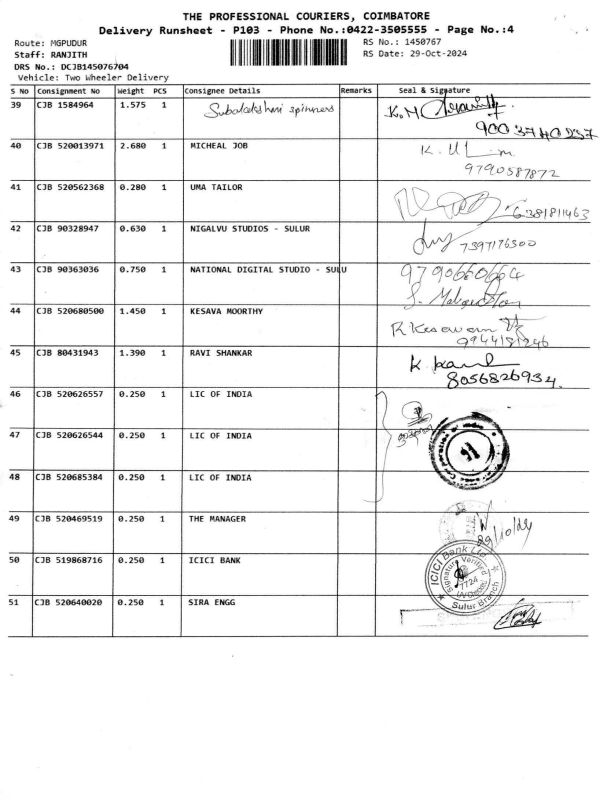 THE PROFESSIONAL COURIERS, COIMBATORE
Delivery Runsheet - P103 - Phone No.:0422-3505555 - Page No.:4
Route: MGPUDUR
Staff: RANJITH
DRS No.: DCJB145076704
Vehicle: Two Wheeler Delivery
RS No.: 1450767
RS Date: 29-Oct-2024
S No Consignment No Weight PCS Consignee Details Remarks Seal & Signature
39 CJB 1584964 1.575 1 Subalakshmi spinners K.M
9003740257
40 CJB 520013971 2.680 1 MICHEAL JOB
9790587872
41 CJB 520562368 0.280 1 UMA TAILOR
6381811463
42 CJB 90328947 0.630 1 NIGALVU STUDIOS - SULUR
7397176300
43 CJB 90363036 0.750 1 NATIONAL DIGITAL STUDIO - SULU 9790660664
44 CJB 520680500 1.450 1 KESAVA MOORTHY R.Kesavam
9944181246
45 CJB 80431943 1.390 1 RAVI SHANKAR K
8056826934.
46 CJB 520626557 0.250 1 LIC OF INDIA
47 CJB 520626544 0.250 1 LIC OF INDIA
48 CJB 520685384 0.250 1 LIC OF INDIA
49 CJB 520469519 0.250 1 THE MANAGER
50 CJB 519868716 0.250 1 ICICI BANK
ICICI Bank Ltd
Signature Verified
Sulur Branch
51 CJB 520640020 0.250 1 SIRA ENGG